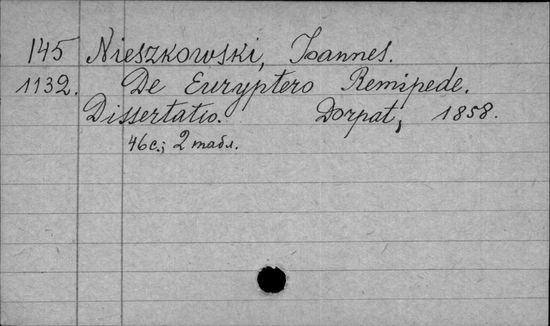 145 Nieszkowski, Ioannes.
1132. De Euryptero Remipede.
Dissertatio. Dorpat, 1858.
46 с.; 2 табл.